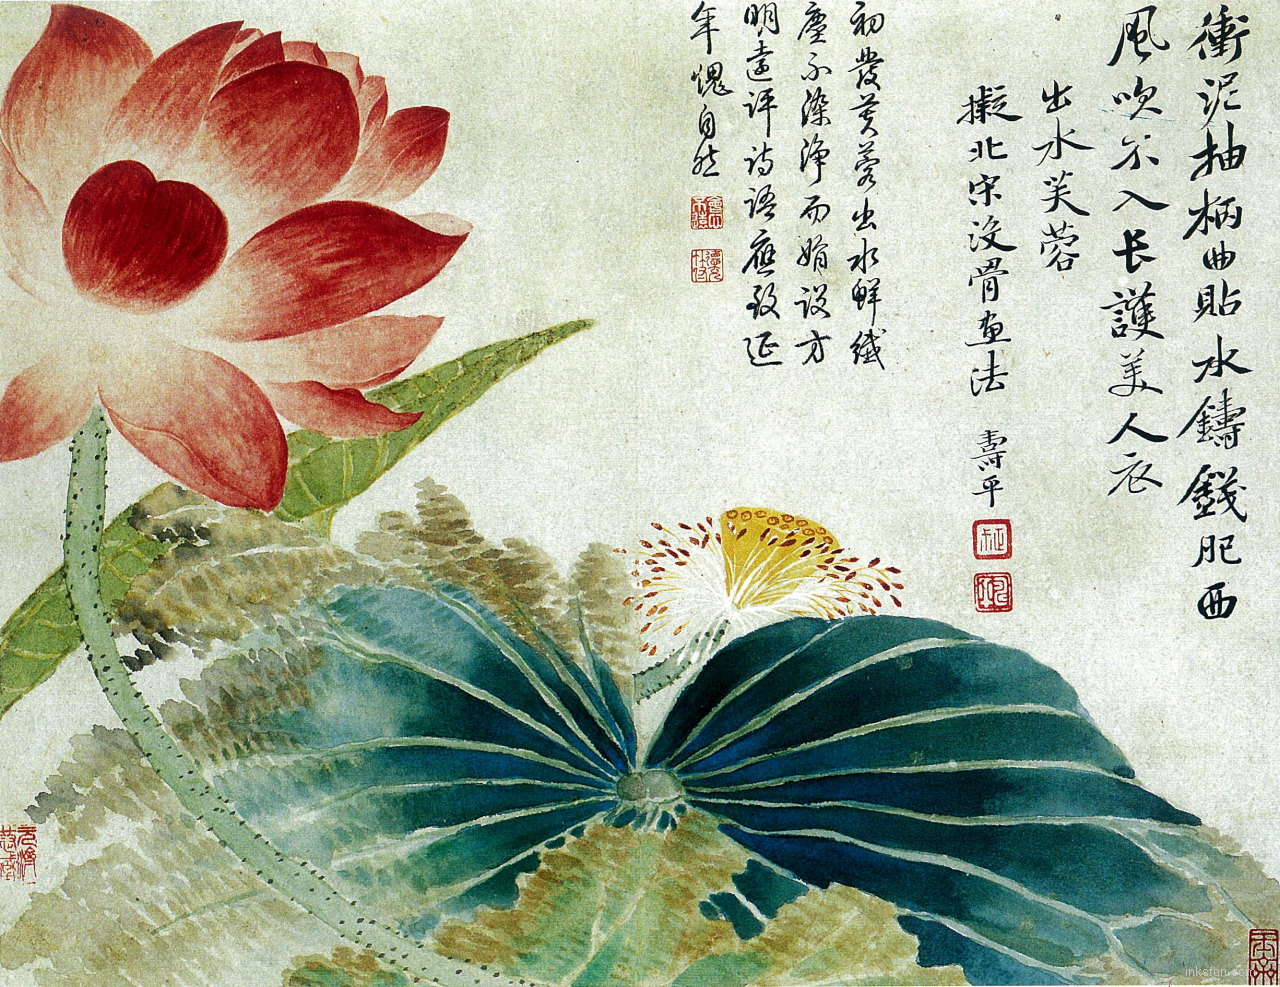 衝泥抽柄曲貼水鑄錢肥西
風吹不入长護美人衣
出水芙蓉
擬北宋没骨畫法
壽平
初發芙蓉出水鮮纖
塵不染淨而娟設方
明遠評詩語應致延
年愧自然
inkston.com